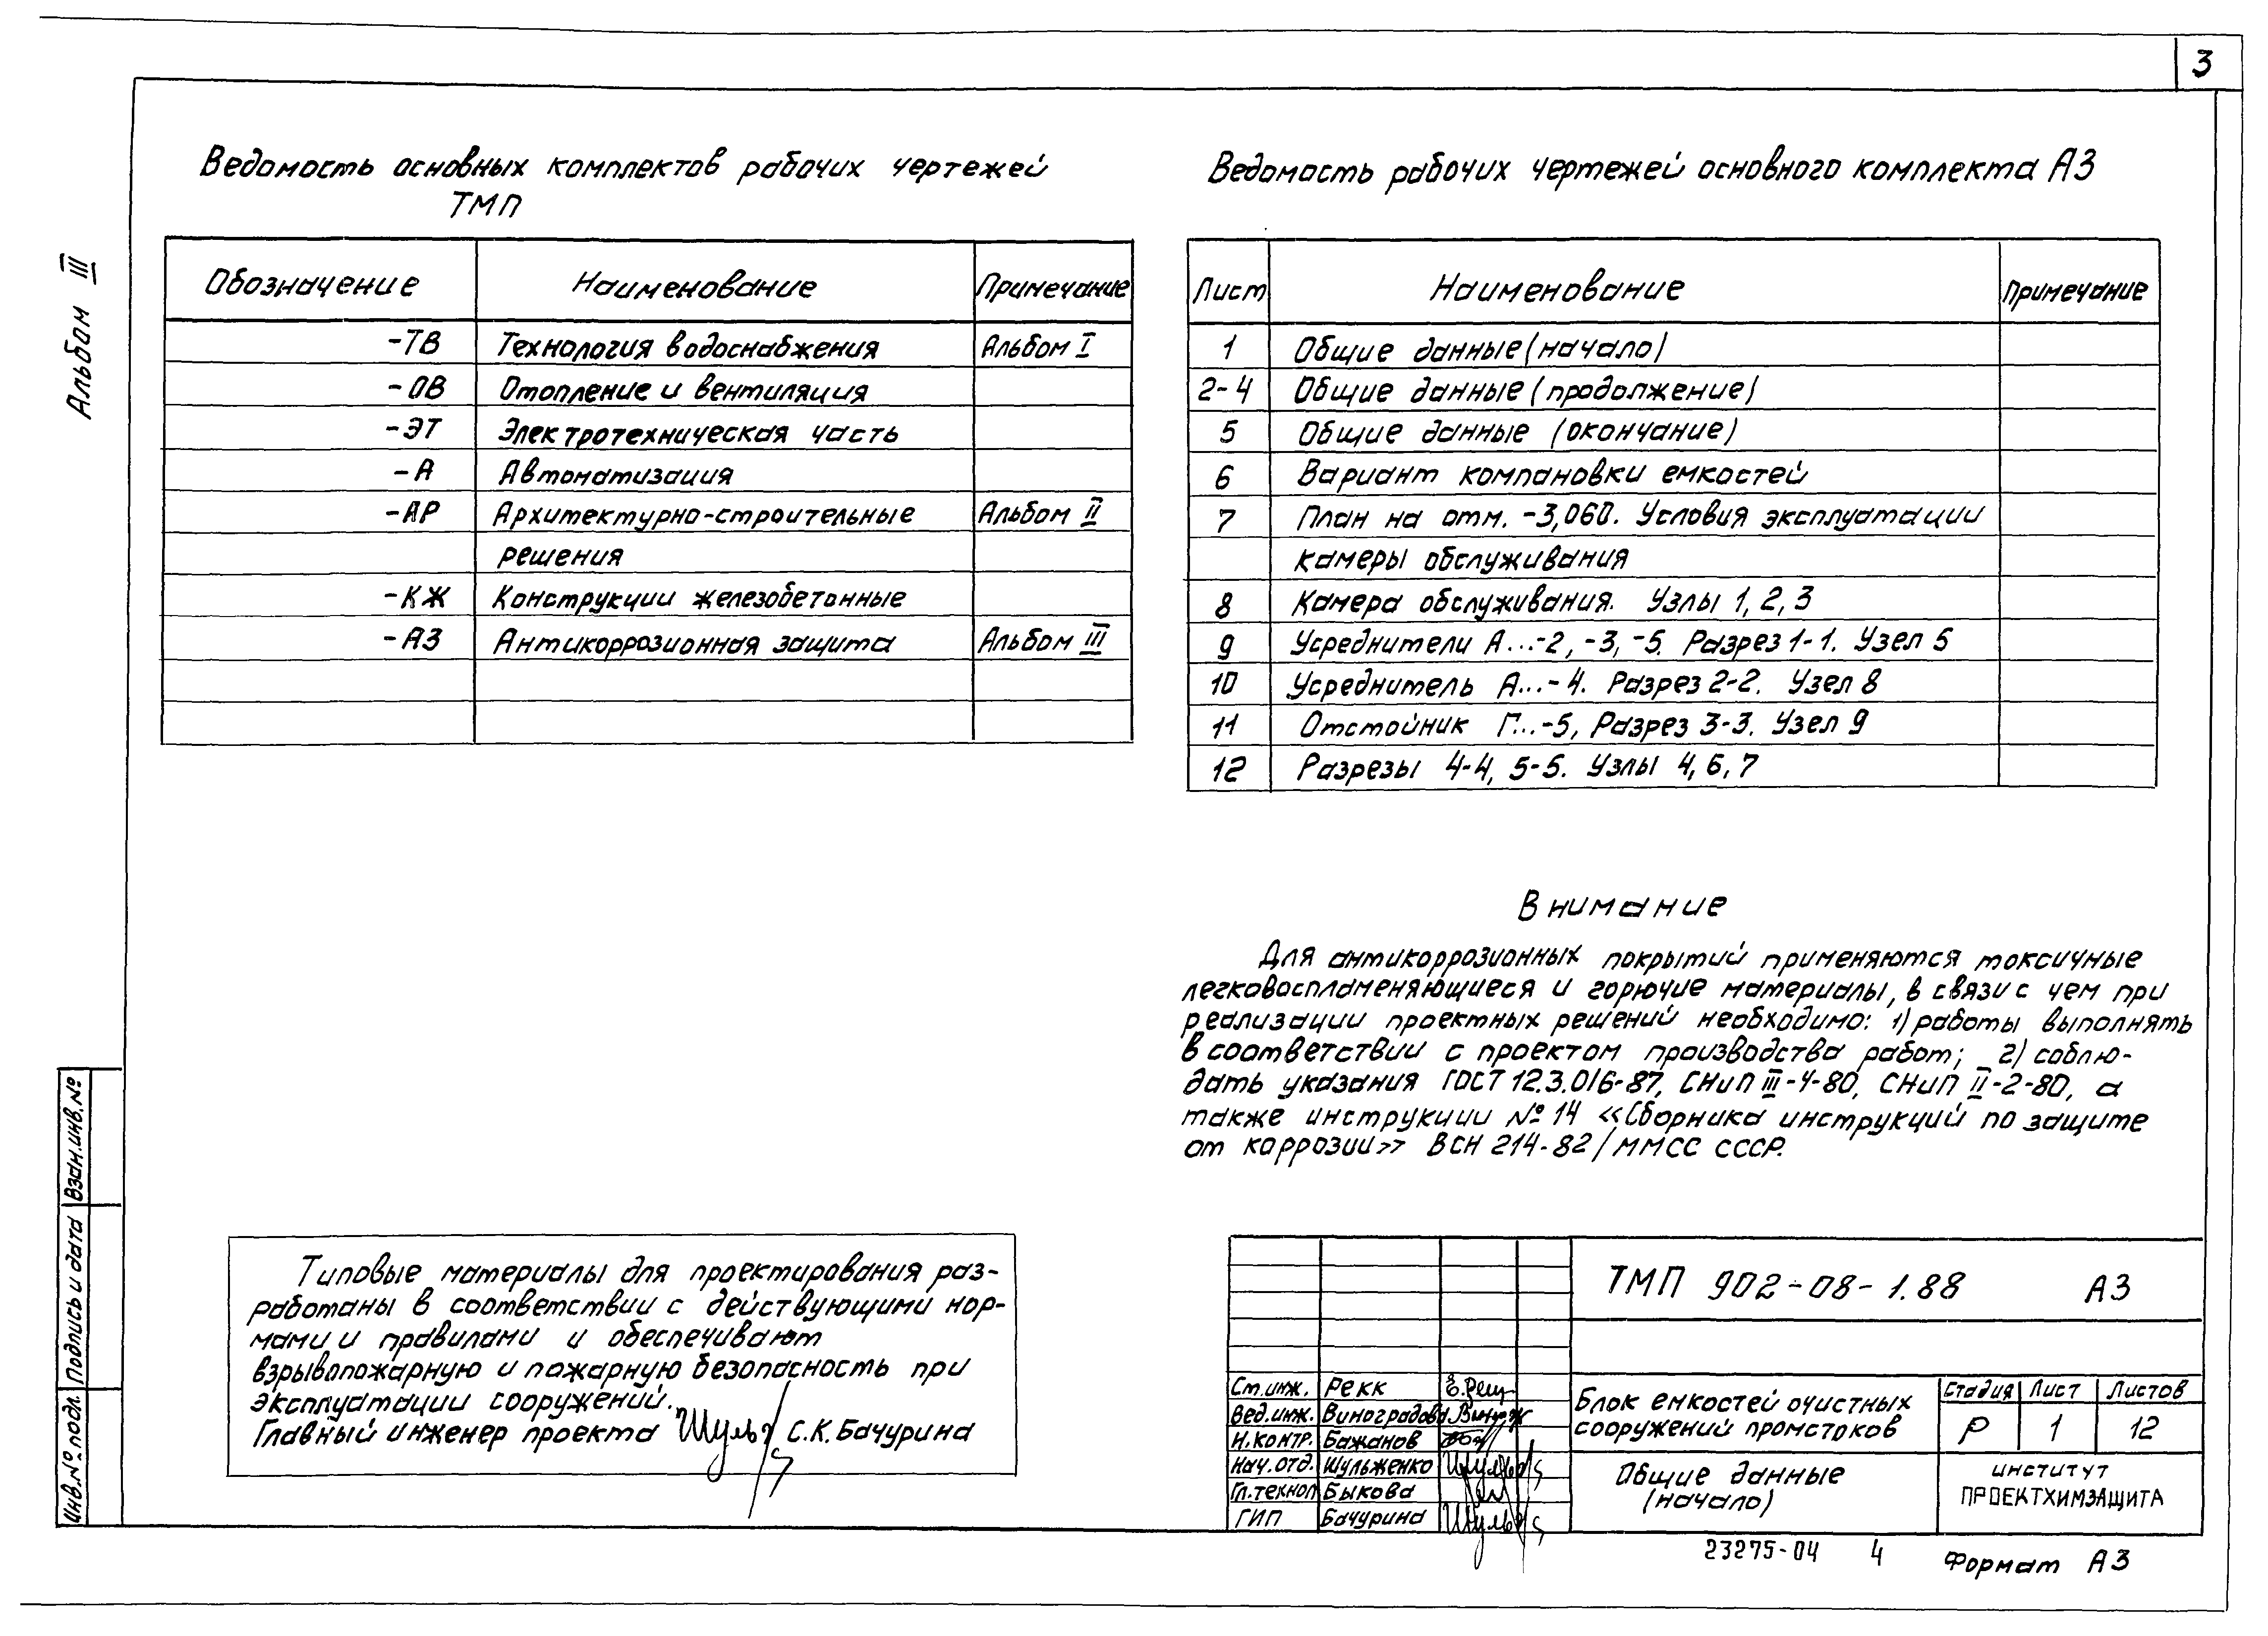 3
Альбом III
Ведомость основных комплектов рабочих чертежей
ТМП
Обозначение Наименование Примечание
-ТВ Технология водоснабжения Альбом I
-ОВ Отопление и вентиляция
-ЭТ Электротехническая часть
-А Автоматизация
-АР Архитектурно-строительные Альбом II
решения
-КЖ Конструкции железобетонные
-АЗ Антикоррозионная защита Альбом III
Ведомость рабочих чертежей основного комплекта АЗ
Лист Наименование Примечание
1 Общие данные (начало)
2-4 Общие данные (продолжение)
5 Общие данные (окончание)
6 Вариант компановки емкостей
7 План на отм. -3,060. Условия эксплуатации
камеры обслуживания
8 Камера обслуживания. Узлы 1, 2, 3
9 Усреднители А...-2, -3, -5. Разрез 1-1. Узел 5
10 Усреднитель А...-4. Разрез 2-2. Узел 8
11 Отстойник Г...-5, Разрез 3-3. Узел 9
12 Разрезы 4-4, 5-5. Узлы 4, 6, 7
Внимание
Для антикоррозионных покрытий применяются токсичные
легковоспламеняющиеся и горючие материалы, в связи с чем при
реализации проектных решений необходимо: 1) работы выполнять
в соответствии с проектом производства работ; 2) соблю-
дать указания ГОСТ 12.3.016-87, СНиП III-4-80, СНиП II-2-80, а
также инструкции № 14 «Сборника инструкций по защите
от коррозии» ВСН 214-82/ММСС СССР.
Типовые материалы для проектирования раз-
работаны в соответствии с действующими нор-
мами и правилами и обеспечивают
взрывопожарную и пожарную безопасность при
эксплуатации сооружений.
Главный инженер проекта С.К. Бачурина
Взам.инв.№
Подпись и дата
Инв.№ подл.
ТМП 902-08-1.88 АЗ
Ст.инж. Рекк
Вед.инж. Виноградова
Н.контр. Бажанов
Нач.отд. Шульженко
Гл.технол Быкова
ГИП Бачурина
Блок емкостей очистных
сооружений промстоков
Стадия Лист Листов
Р 1 12
Общие данные
(начало)
институт
ПРОЕКТХИМЗАЩИТА
23275-04 4 Формат А3